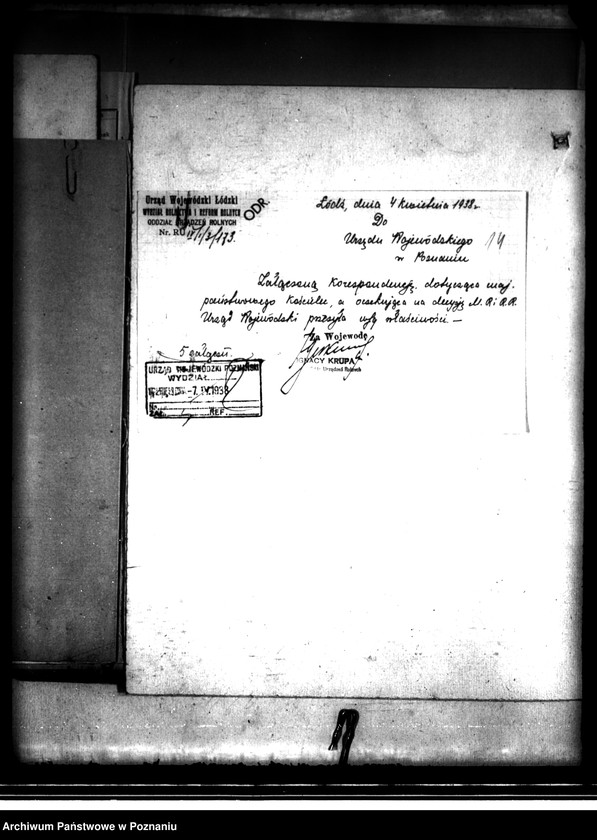 Urząd Wojewódzki Łódzki
WYDZIAŁ ROLNICTWA I REFORM ROLNYCH
ODDZIAŁ URZĄDZEŃ ROLNYCH
Nr. RU
ODR.
Łódź, dnia 4 kwietnia 1938 r
Do
Urzędu Wojewódzkiego
w Poznaniu
14
Załączoną korespondencję, dotyczącą maj.
państwowego Kościelec, a oczekującą na decyzję M. R. i R. R.
Urząd Wojewódzki przesyła wg właściwości —
Za Wojewodę
IGNACY KRUPA
Urządzeń Rolnych
5 załączn.
URZĄD WOJEWÓDZKI POZNAŃSKI
WYDZIAŁ
-7. IV. 1938
ZAŁ. REF.
Archiwum Państwowe w Poznaniu